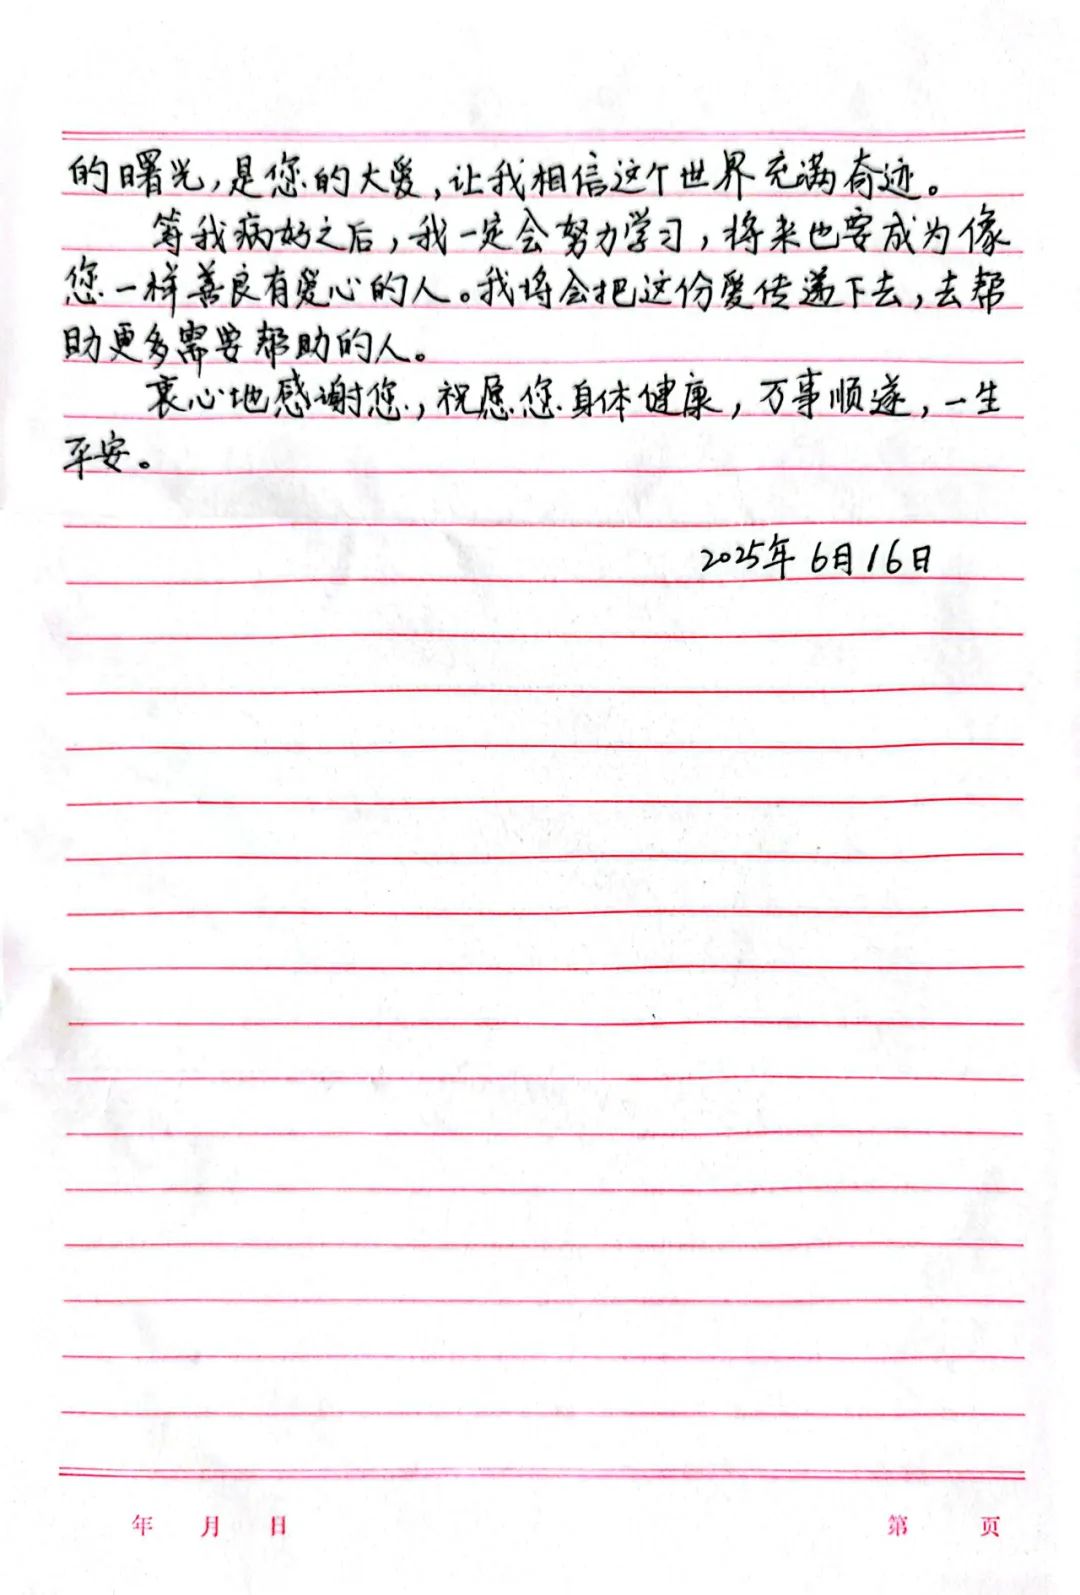 的曙光，是您的大爱，让我相信这个世界充满奇迹。
等我病好之后，我一定会努力学习，将来也要成为像
您一样善良有爱心的人。我将会把这份爱传递下去，去帮
助更多需要帮助的人。
衷心地感谢您，祝愿您身体健康，万事顺遂，一生
平安。
2025年6月16日
年 月 日 第 页